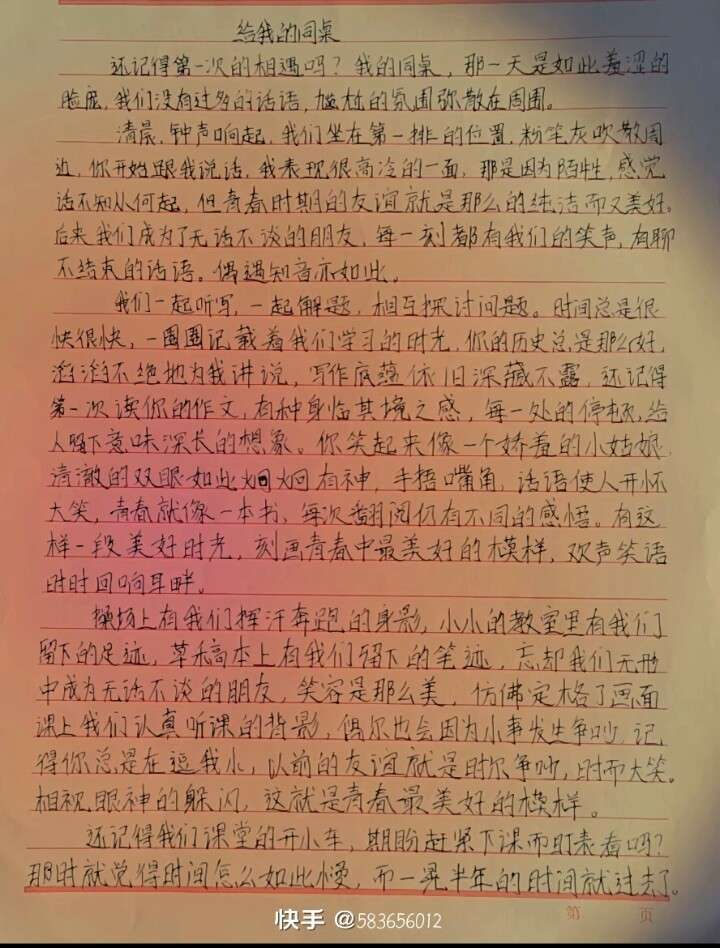 给我的同桌
还记得第一次的相遇吗？我的同桌，那一天是如此羞涩的
脸庞，我们没有过多的话语，尴尬的氛围弥散在周围。
清晨，钟声响起，我们坐在第一排的位置，粉笔灰吹散周
边，你开始跟我说话，我表现很高冷的一面，那是因为陌生，感觉
话不知从何起，但青春时期的友谊就是那么的纯洁而又美好。
后来我们成为了无话不谈的朋友，每一刻都有我们的笑声，有聊
不结束的话语。偶遇知音亦如此。
我们一起听写，一起解题，相互探讨问题。时间总是很
快很快，一圈圈记载着我们学习的时光，你的历史总是那么好，
滔滔不绝地为我讲说，写作底蕴依旧深藏不露，还记得
第一次读你的作文，有种身临其境之感，每一处的停顿，给
人留下意味深长的想象。你笑起来像一个娇羞的小姑娘，
清澈的双眼如此炯炯有神，手捂嘴角，话语使人开怀
大笑，青春就像一本书，每次翻阅仍有不同的感悟。有这
样一段美好时光，刻画青春中最美好的模样，欢声笑语
时时回响耳畔。
操场上有我们挥汗奔跑的身影，小小的教室里有我们
留下的足迹，草稿本上有我们留下的笔迹，忘却我们无形
中成为无话不谈的朋友，笑容是那么美，仿佛定格了画面
课上我们认真听课的背影，偶尔也会因为小事发生争吵，记
得你总是在逗我小，以前的友谊就是时尔争吵，时而大笑。
相视眼神的躲闪，这就是青春最美好的模样。
还记得我们课堂的开小车，期盼赶紧下课而盯表看吗？
那时就觉得时间怎么如此慢，而一晃半年的时间就过去了。
第 页
快手 @583656012